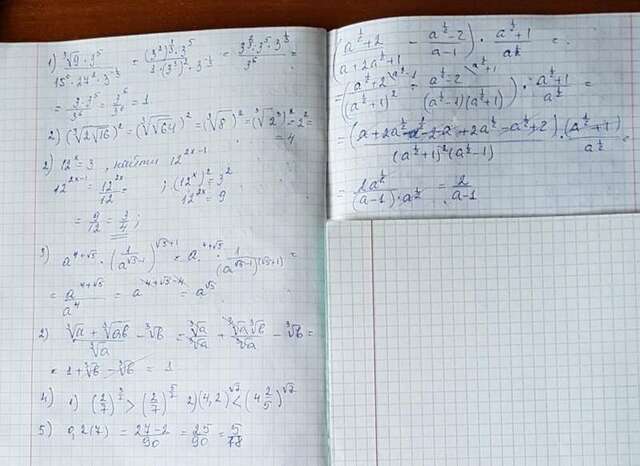 1) ∛9 · 3⁵ / 15⁰ · 27² · 3^(-1/3) = (3²)^(1/3) · 3⁵ / 1 · (3³)² · 3^(-1/3) = 3^(2/3) · 3⁵ · 3^(1/3) / 3⁶ =
= 3 · 3⁵ / 3⁶ = 3⁶ / 3⁶ = 1
2) (∛2√16)² = (∛√64)² = (∛8)² = 2² =
= 4
2) 12ˣ = 3 , найти 12^(2x-1)
12^(2x-1) = 12^(2x) / 12 = ; (12ˣ)² = 3²
12^(2x) = 9
= 9/12 = 3/4 ;
3) a^(4+√5) · (1 / a^(√5-1))^(√5+1) = a^(4+√5) · 1 / a^((√5-1)(√5+1)) =
= a^(4+√5) / a⁴ = a^(4+√5-4) = a^√5
2) ∛a + ∛ab / ∛a - ∛b = ∛a / ∛a + ∛a ∛b / ∛a - ∛b =
= 1 + ∛b - ∛b = 1
4) 1) (2/7) > (2/7)^(5/2) 2) (4,2)^√7 < (4 2/5)^√7
5) 0,2(7) = 27-2 / 90 = 25/90 = 5/18
(a^(1/2) + 2 / a + 2a^(1/2) + 1 - a^(1/2) - 2 / a - 1) · a^(1/2) + 1 / a^(1/2) =
= (a^(1/2) + 2 / (a^(1/2) + 1)² - a^(1/2) - 2 / (a^(1/2) - 1)(a^(1/2) + 1)) · a^(1/2) + 1 / a^(1/2) =
= (a + 2a^(1/2) - a^(1/2) - 2 - a + 2a^(1/2) - a^(1/2) + 2) / (a^(1/2) + 1)² (a^(1/2) - 1) · (a^(1/2) + 1) / a^(1/2) =
= 2a^(1/2) / (a - 1) · a^(1/2) = 2 / a - 1